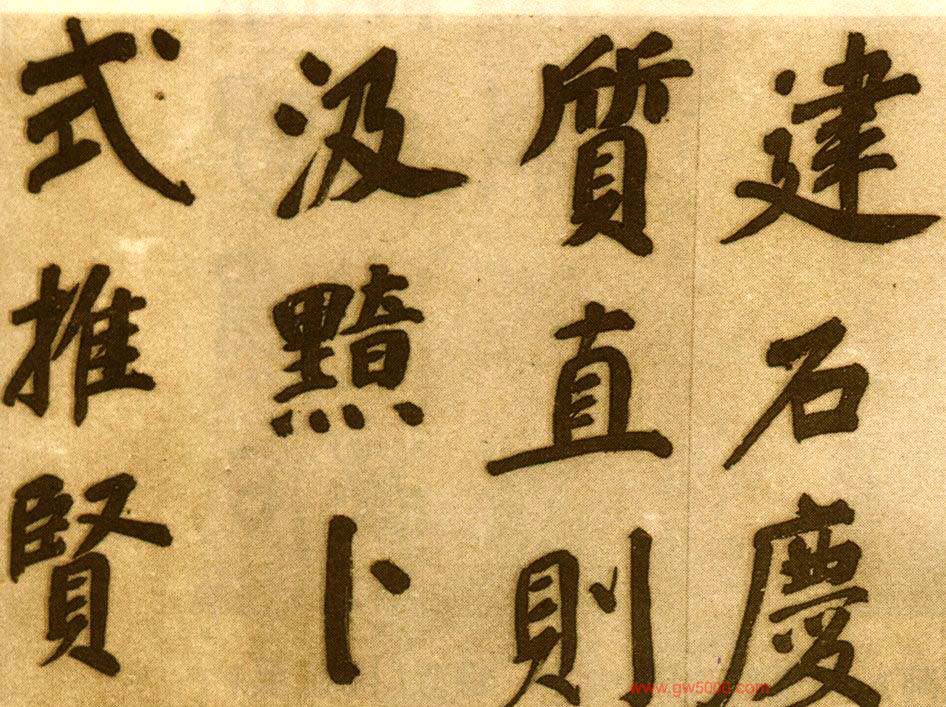 建石慶
質直則
汲黯卜
式推賢
www.gw5000.com